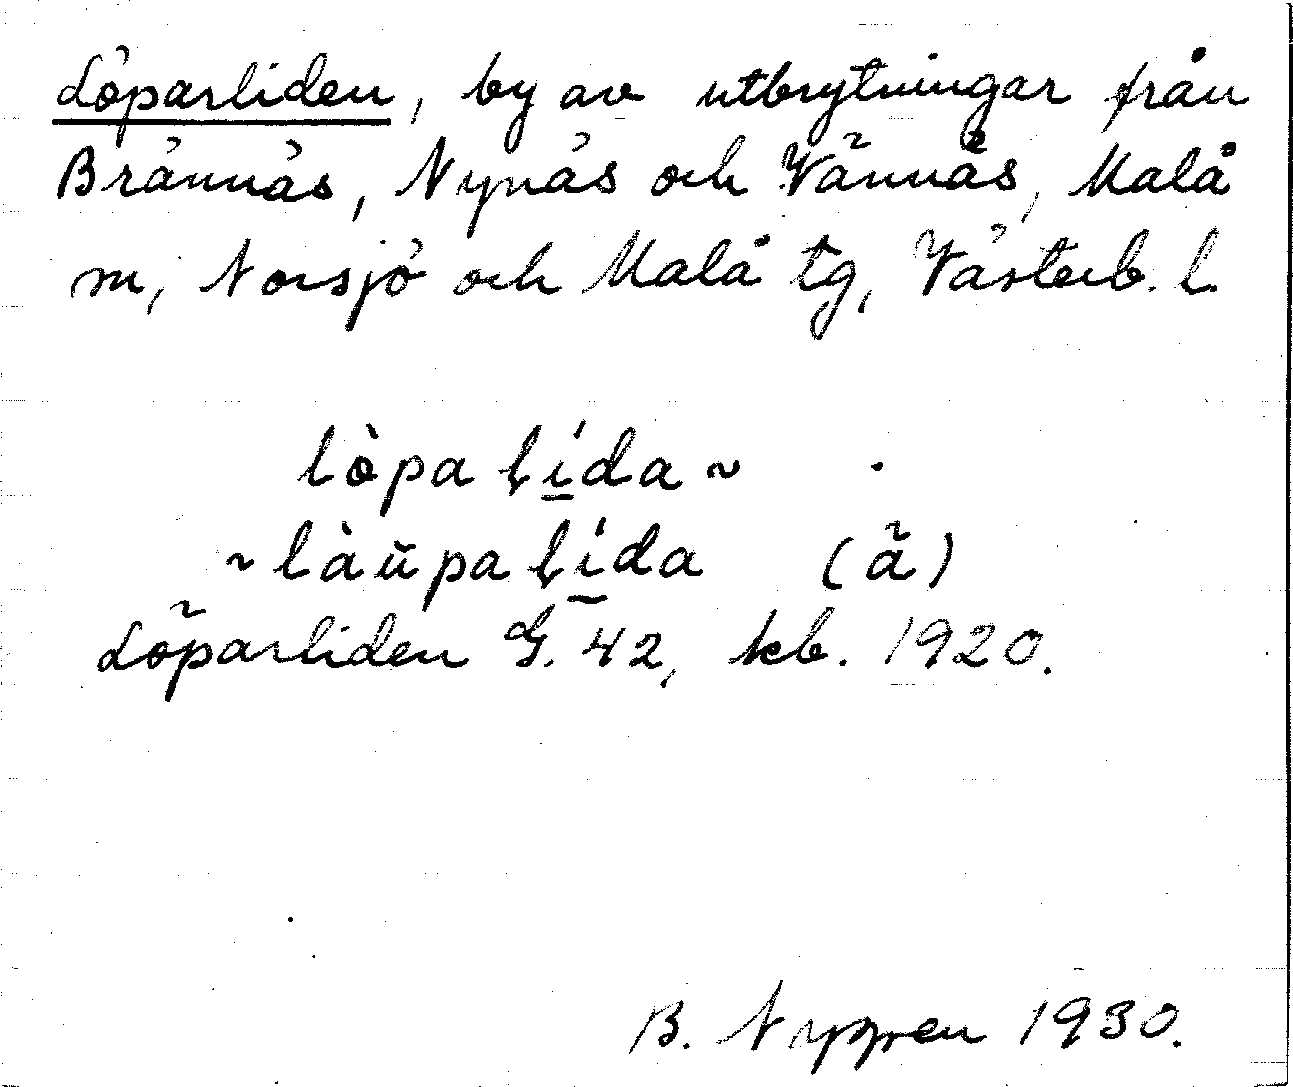 Löparliden, by av utbrytningar från
Brännäs, Nynäs och Vännäs, Malå
m, Norsjö och Malå tg, Västerb. l.
lòpa lí̱da ~
~ làŭpa lí̱da (ä)
Löparliden G. 42, kb. 1920.
B. Nygren 1930.